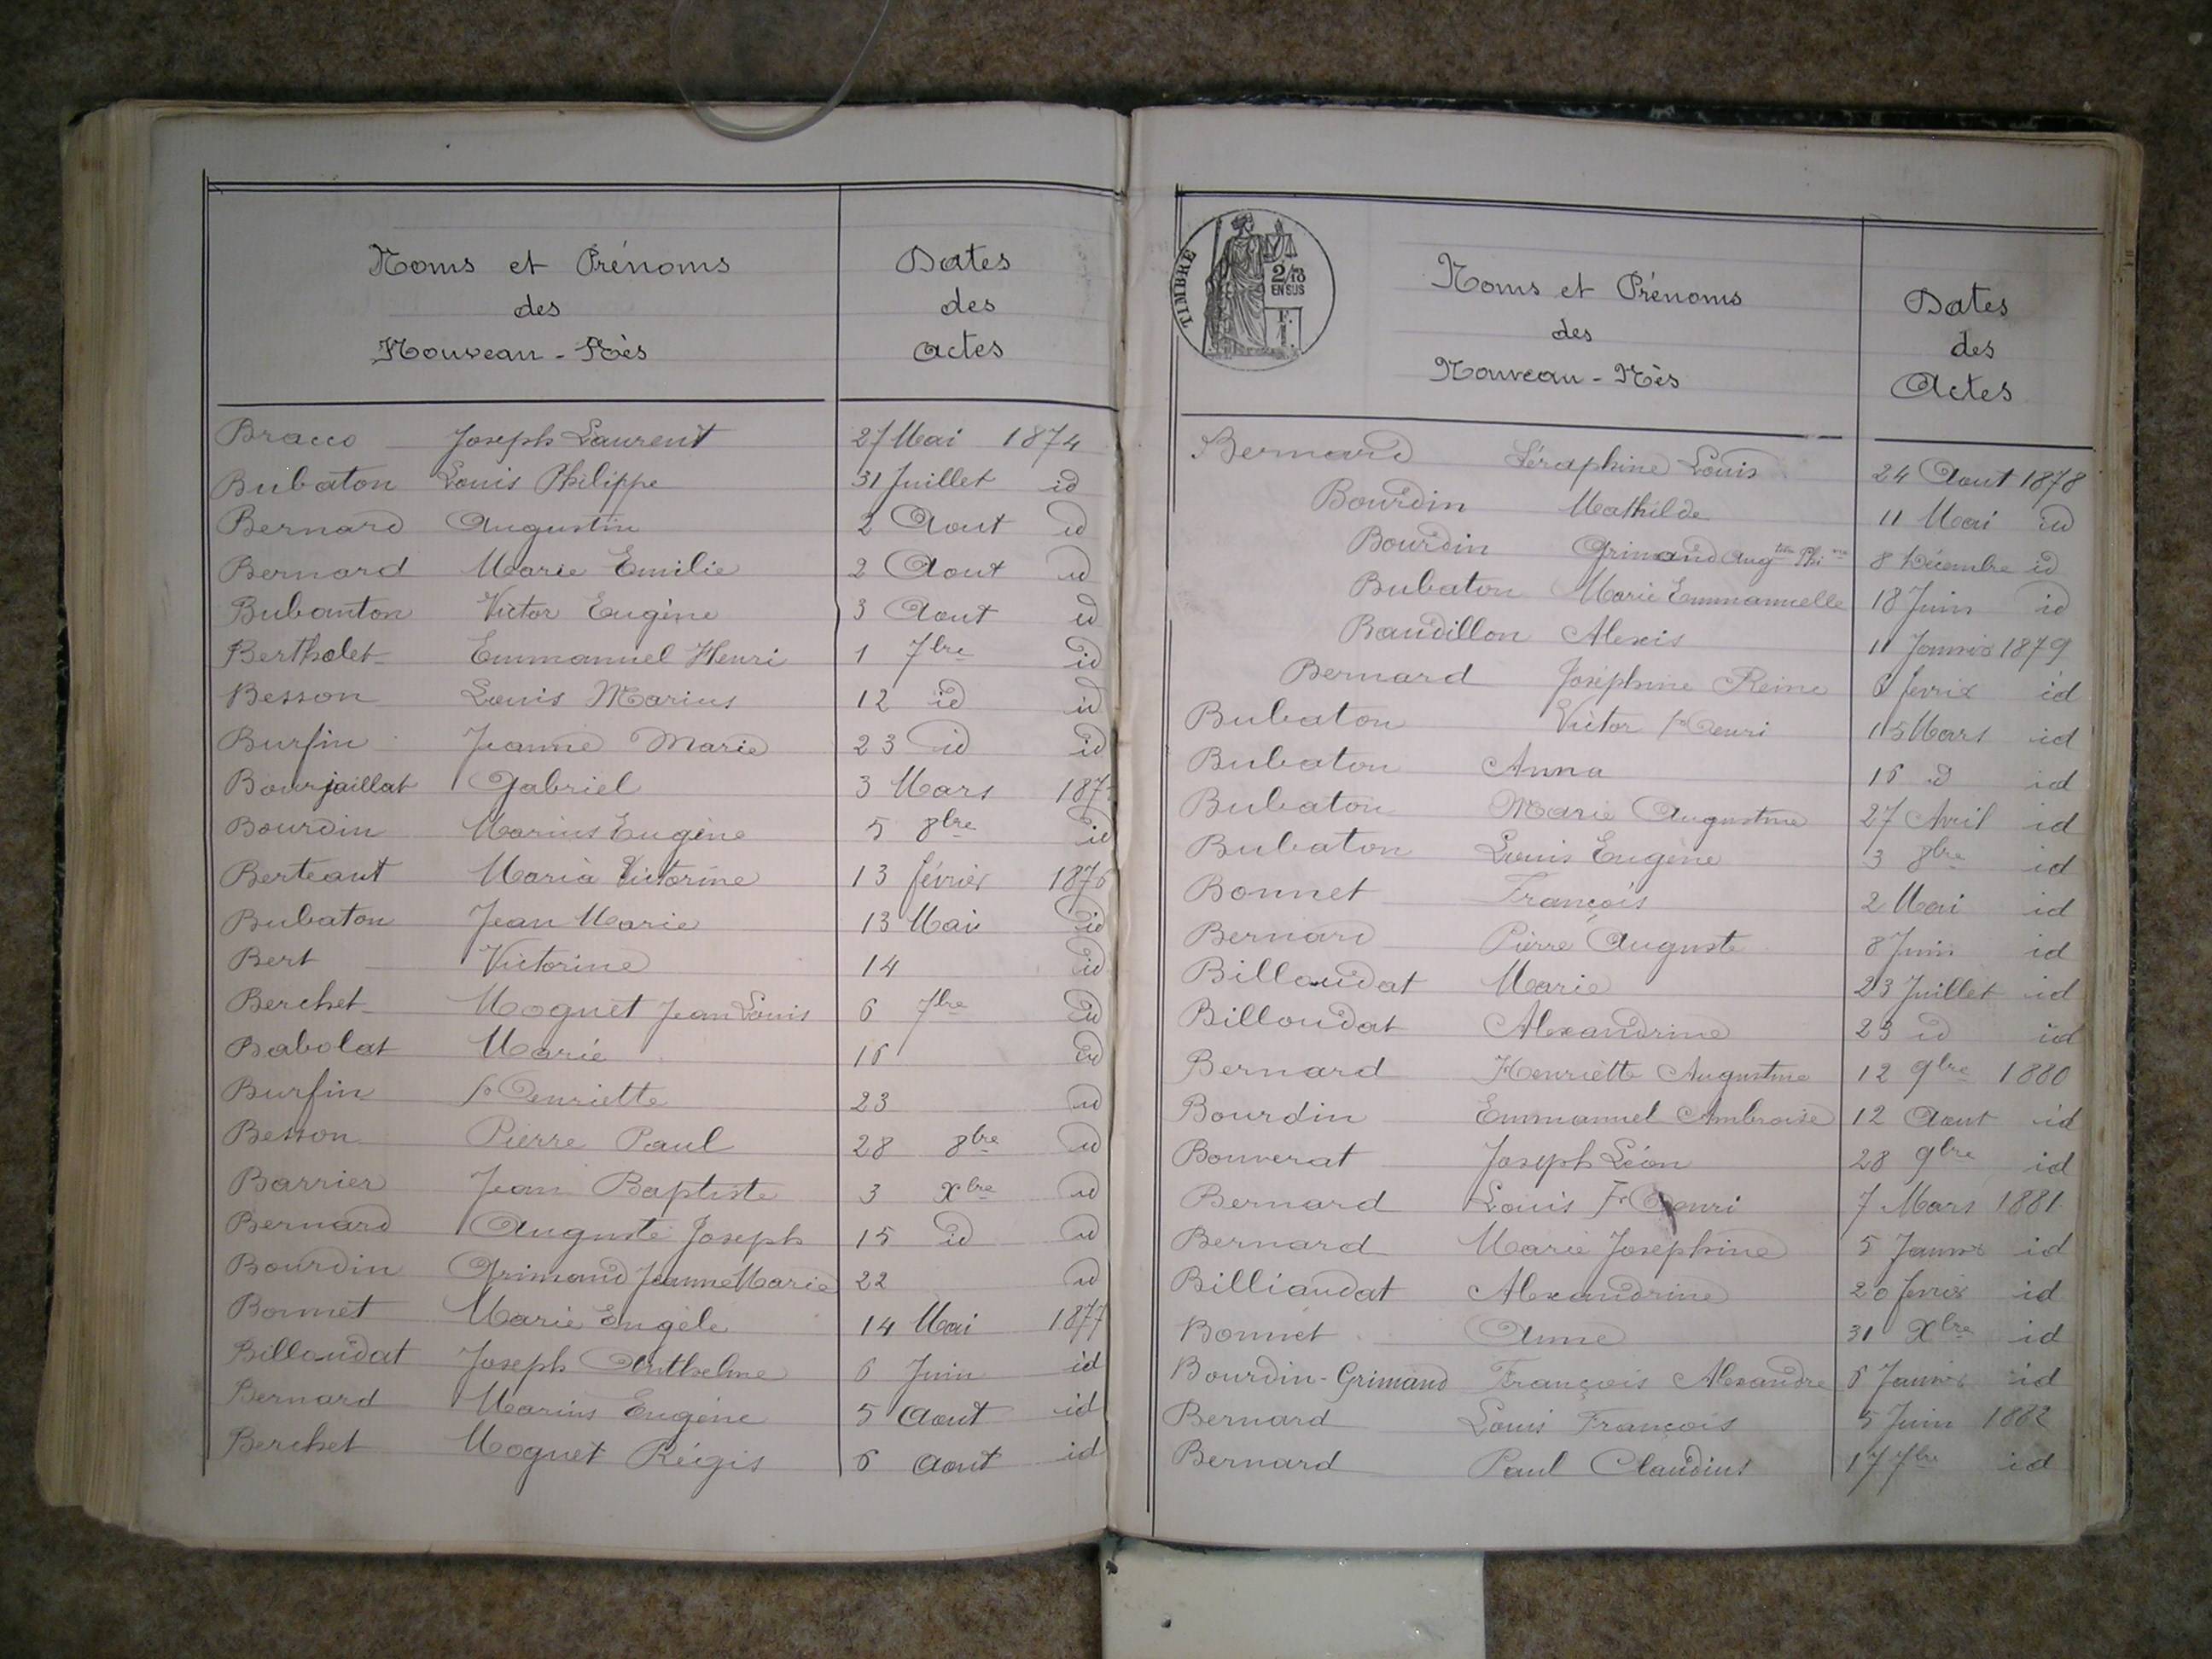 Noms et Prénoms
des
Nouveau-Nés
Dates
des
actes
Bracco Joseph Laurent 27 Mai 1874
Bubaton Louis Philippe 31 Juillet id
Bernard Augustin 2 Aout id
Bernard Marie Emilie 2 Aout id
Bubanton Victor Eugène 3 Aout id
Bertholet Emmanuel Henri 1 7bre id
Besson Louis Marius 12 id id
Burfin Jeanne Marie 23 id id
Bourjaillat Gabriel 3 Mars 187
Bourdin Marius Eugène 5 8bre id
Berteaut Maria Victorine 13 février 1876
Bubaton Jean Marie 13 Mai id
Bert Victorine 14 id
Berchet Moguet Jean Louis 6 7bre id
Babolat Marie 16 id
Burfin Henriette 23 id
Besson Pierre Paul 28 8bre id
Barrier Jean Baptiste 3 Xbre id
Bernard Auguste Joseph 15 id id
Bourdin Grimand Jeanne Marie 22 id
Bonnet Marie Engèle 14 Mai 1877
Billoudat Joseph Anthelme 6 Juin id
Bernard Marius Eugène 5 Aout id
Berchet Moguet Régis 6 Aout id
TIMBRE
2/10
EN SUS
F.
Noms et Prénoms
des
Nouveau-Nés
Dates
des
Actes
Bernard Séraphine Louis 24 Aout 1878
Bourdin Mathilde 11 Mai id
Bourdin Grimand Augtin Phi 8 Décembre id
Bubaton Marie Emmanuelle 18 Juin id
Baudillon Alexis 11 Janvier 1879
Bernard Joséphine Reine 6 fevrier id
Bubaton Victor Henri 15 Mars id
Bubaton Anna 16 id id
Bubaton Marie Augustine 27 Avril id
Bubaton Louis Eugène 3 8bre id
Bonnet François 2 Mai id
Bernard Pierre Auguste 8 Juin id
Billoudat Marie 23 Juillet id
Billoudat Alexandrine 23 id id
Bernard Henriette Augustine 12 9bre 1880
Bourdin Emmanuel Ambroise 12 Aout id
Bouverat Joseph Léon 28 9bre id
Bernard Louis Henri 7 Mars 1881
Bernard Marie Joséphine 5 Janvier id
Billiaudat Alexandrine 20 fevrier id
Bonnet Anne 31 Xbre id
Bourdin-Grimand François Alexandre 6 Janvier id
Bernard Louis François 5 Juin 1882
Bernard Paul Claudius 17 7bre id